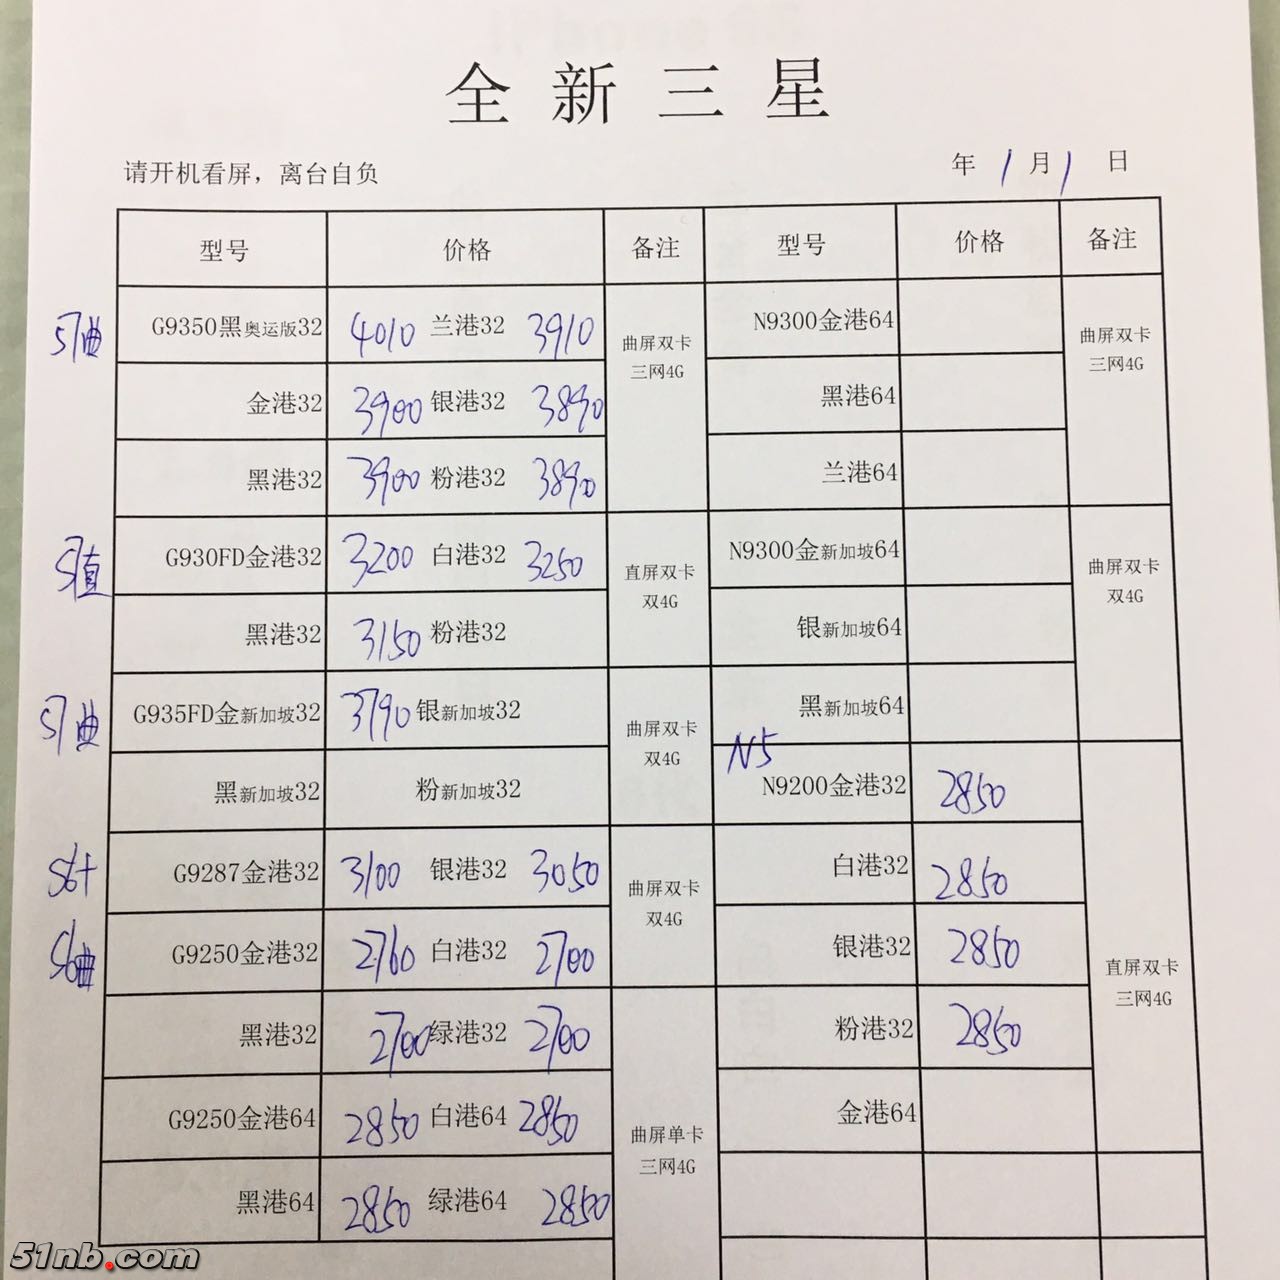 全新三星
请开机看屏，离台自负 年 1 月 1 日
型号 价格 备注 型号 价格 备注
S7曲 G9350黑奥运版32 4010 兰港32 3910 曲屏双卡 三网4G N9300金港64 曲屏双卡 三网4G
金港32 3900 银港32 3890 黑港64
黑港32 3900 粉港32 3890 兰港64
S7直 G930FD金港32 3200 白港32 3250 直屏双卡 双4G N9300金新加坡64 曲屏双卡 双4G
黑港32 3150 粉港32 银新加坡64
S7曲 G935FD金新加坡32 3790 银新加坡32 曲屏双卡 双4G 黑新加坡64
黑新加坡32 粉新加坡32 N5 N9200金港32 2850
S6+ G9287金港32 3100 银港32 3050 曲屏双卡 双4G 白港32 2850
S6曲 G9250金港32 2760 白港32 2700 银港32 2850 直屏双卡 三网4G
黑港32 2700 绿港32 2700 粉港32 2850
G9250金港64 2850 白港64 2850 曲屏单卡 三网4G 金港64
黑港64 2850 绿港64 2850
51nb.com